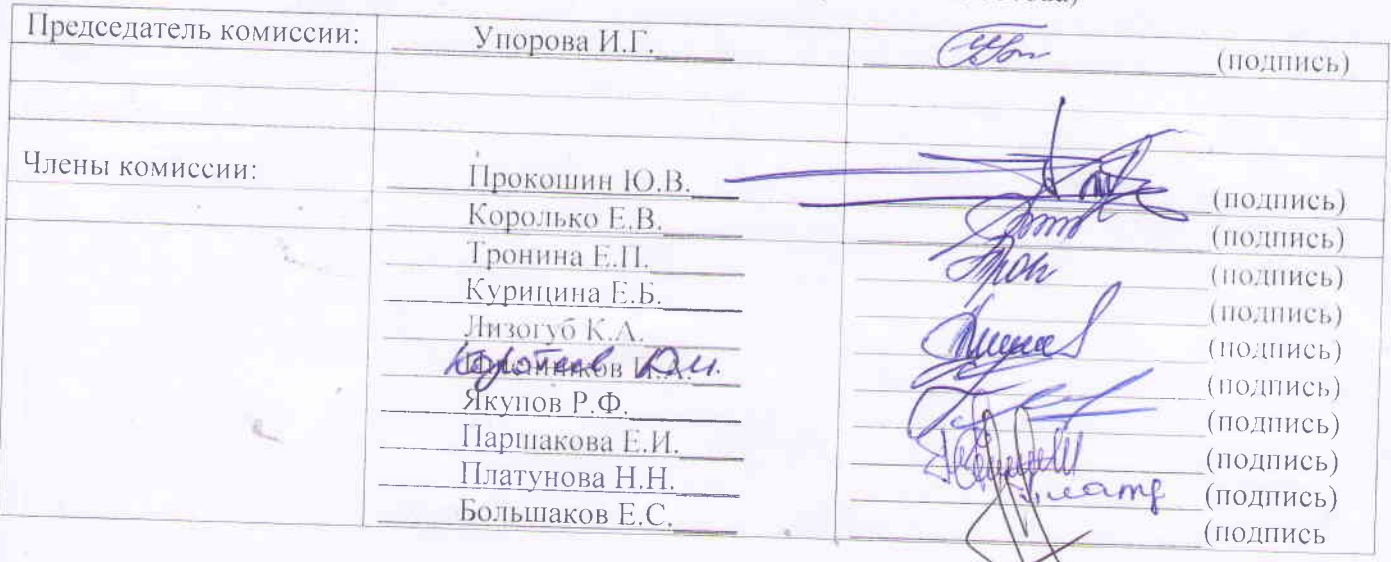 Председатель комиссии: Упорова И.Г. (подпись)
Члены комиссии: Прокошин Ю.В. (подпись)
Королько Е.В. (подпись)
Тронина Е.П. (подпись)
Курицина Е.Б. (подпись)
Лизогуб К.А. (подпись)
(подпись)
Якупов Р.Ф. (подпись)
Паршакова Е.И. (подпись)
Платунова Н.Н. (подпись)
Большаков Е.С. (подпись